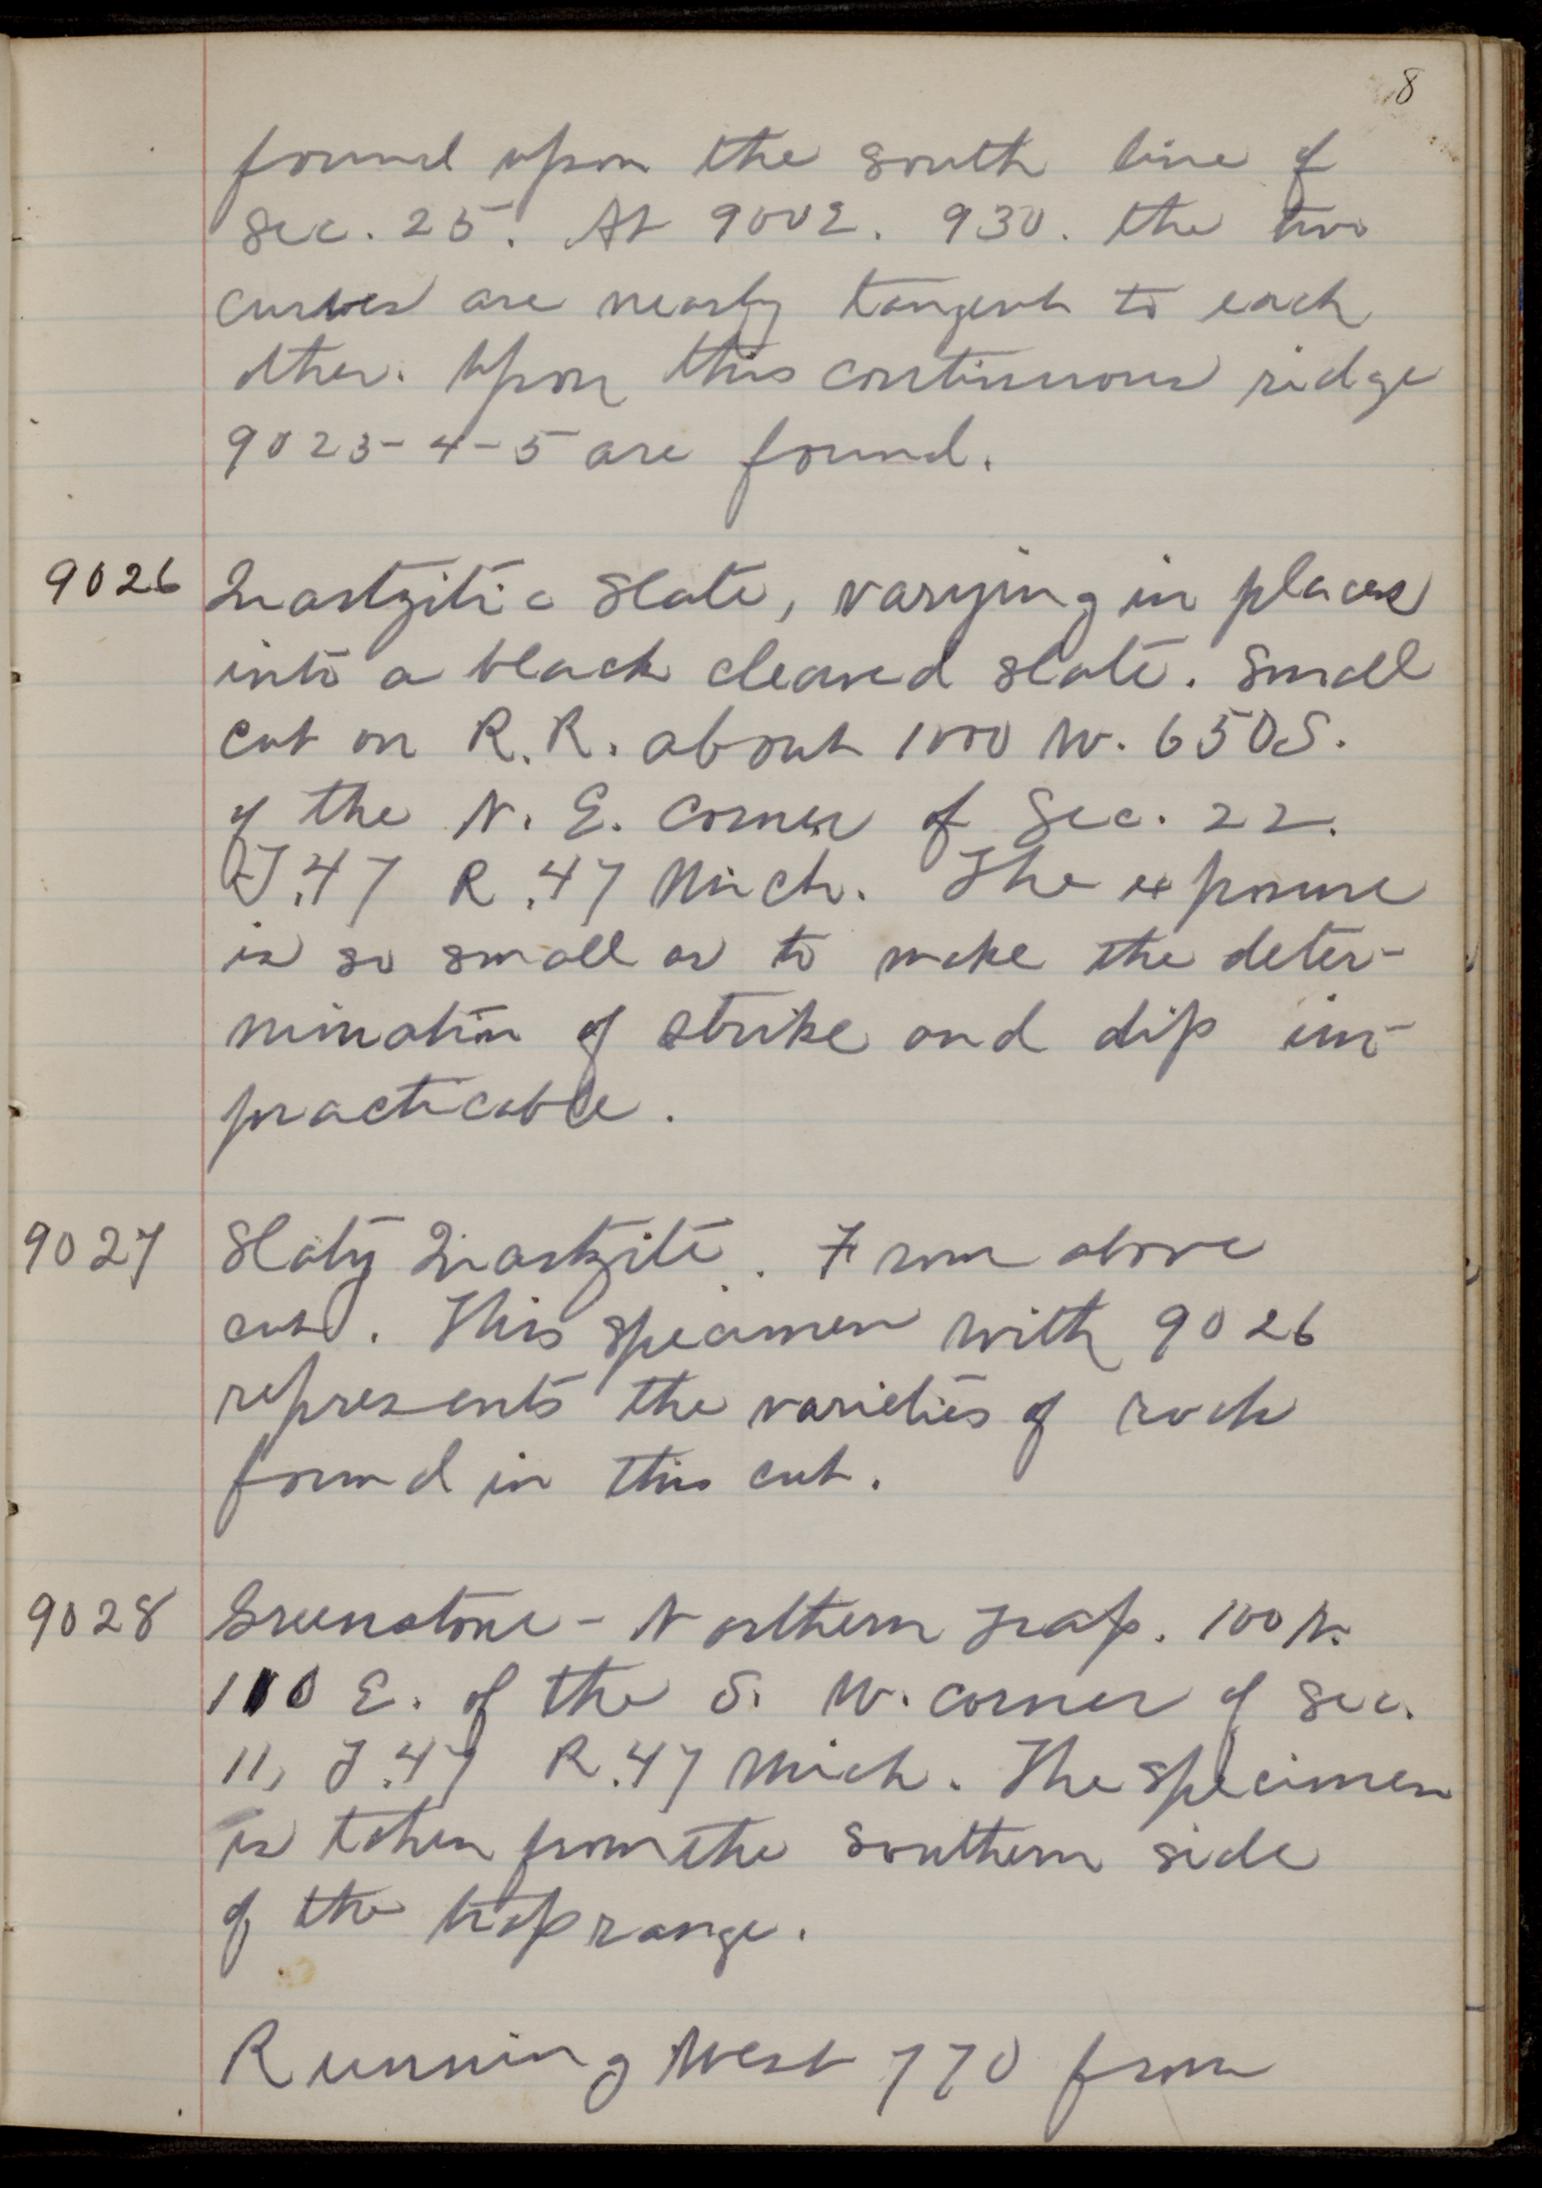 8
found upon the south line of
Sec. 25. At 900E. 930. the two
curves are nearly tangent to each
other. Upon this continuous ridge
9023-4-5 are found.
9026 Quartzitic Slate, varying in places
into a black cleaved slate. Small
cut on R.R. about 1000 W. 650S.
of the N. E. corner of Sec. 22.
T.47 R.47 Mich. The exposure
is so small as to make the deter-
mination of strike and dip im-
practicable.
9027 Slaty Quartzite. From above
cut. This specimen with 9026
represents the varieties of rock
found in this cut.
9028 Greenstone - Northern Trap. 100 N.
100 E. of the S. W. corner of Sec.
11, T.47 R.47 Mich. The specimen
is taken from the southern side
of the trap range.
Running West 770 from